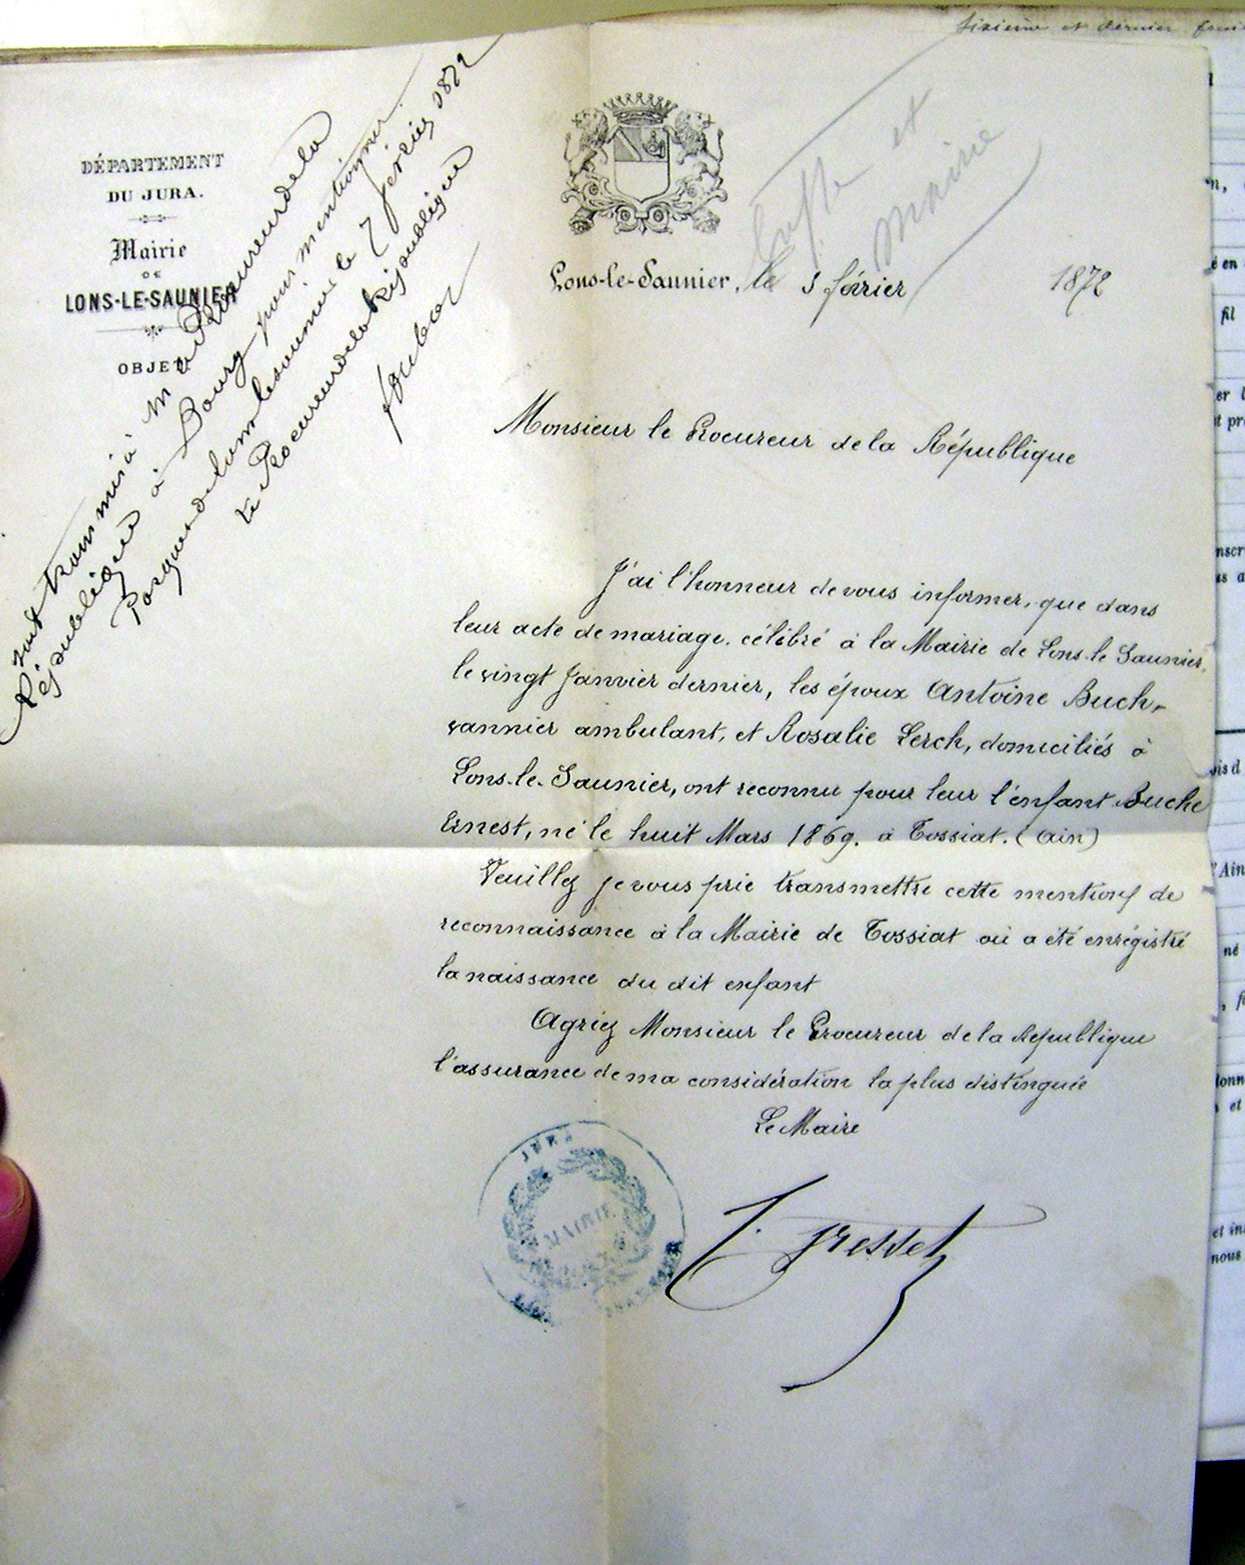 DÉPARTEMENT
DU JURA.
Mairie
DE
LONS-LE-SAUNIER
OBJET
transmis à M le Procureur de la
République à Bourg pour mentionner
Parquet de Lons le saunier le 7 février 1872
le Procureur de la République
et
Mairie
Lons-le-Saunier, le 5 février 1872
Monsieur le Procureur de la République
J'ai l'honneur de vous informer, que dans
leur acte de mariage, célébré à la Mairie de Lons-le-Saunier,
le vingt Janvier dernier, les époux Antoine Buch,
vannier ambulant, et Rosalie Lerch, domiciliés à
Lons-le-Saunier, ont reconnu pour leur l'enfant Buche
Ernest, né le huit Mars 1869. à Tossiat. (Ain)
Veuillez je vous prie transmettre cette mention de
reconnaissance à la Mairie de Tossiat où a été enrégistré
la naissance du dit enfant
Agriez Monsieur le Procureur de la République
l'assurance de ma considération la plus distinguée
Le Maire
JURA
MAIRIE
sixième et dernier